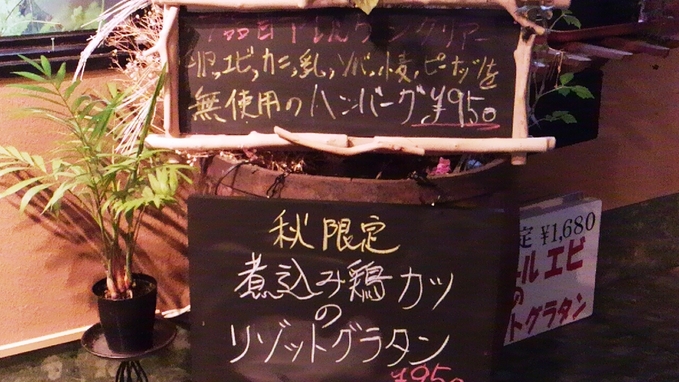 7品目アレルゲンクリアー
卵、エビ、カニ、乳、ソバ、小麦、ピーナッツを
無使用のハンバーグ¥950
秋限定
煮込み鶏カツ
の
リゾットグラタン
¥950
定 ¥1,680
ール エビ
の
トグラタン